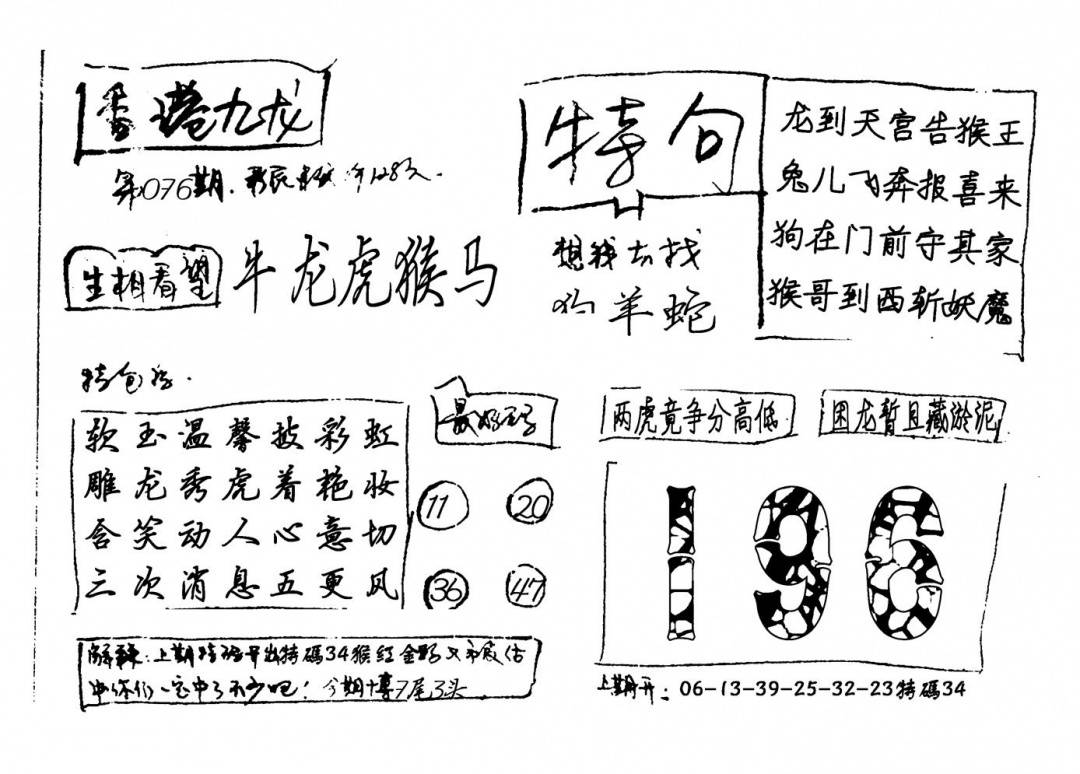 香港九龙
第076期.
生相看望
牛龙虎猴马
特句
想钱去找
狗羊蛇
龙到天宫告猴王
兔儿飞奔报喜来
狗在门前守其家
猴哥到西斩妖魔
特包经.
软玉温馨披彩虹
雕龙秀虎着艳妆
含笑动人心意切
三次消息五更风
11 20
36 47
两虎竞争分高低.
困龙暂且藏淤泥
196
解释:上期特码开出特碼34猴红金野又
中你们一定中了不少吧!今期博7尾3头
上期开:06-13-39-25-32-23特碼34